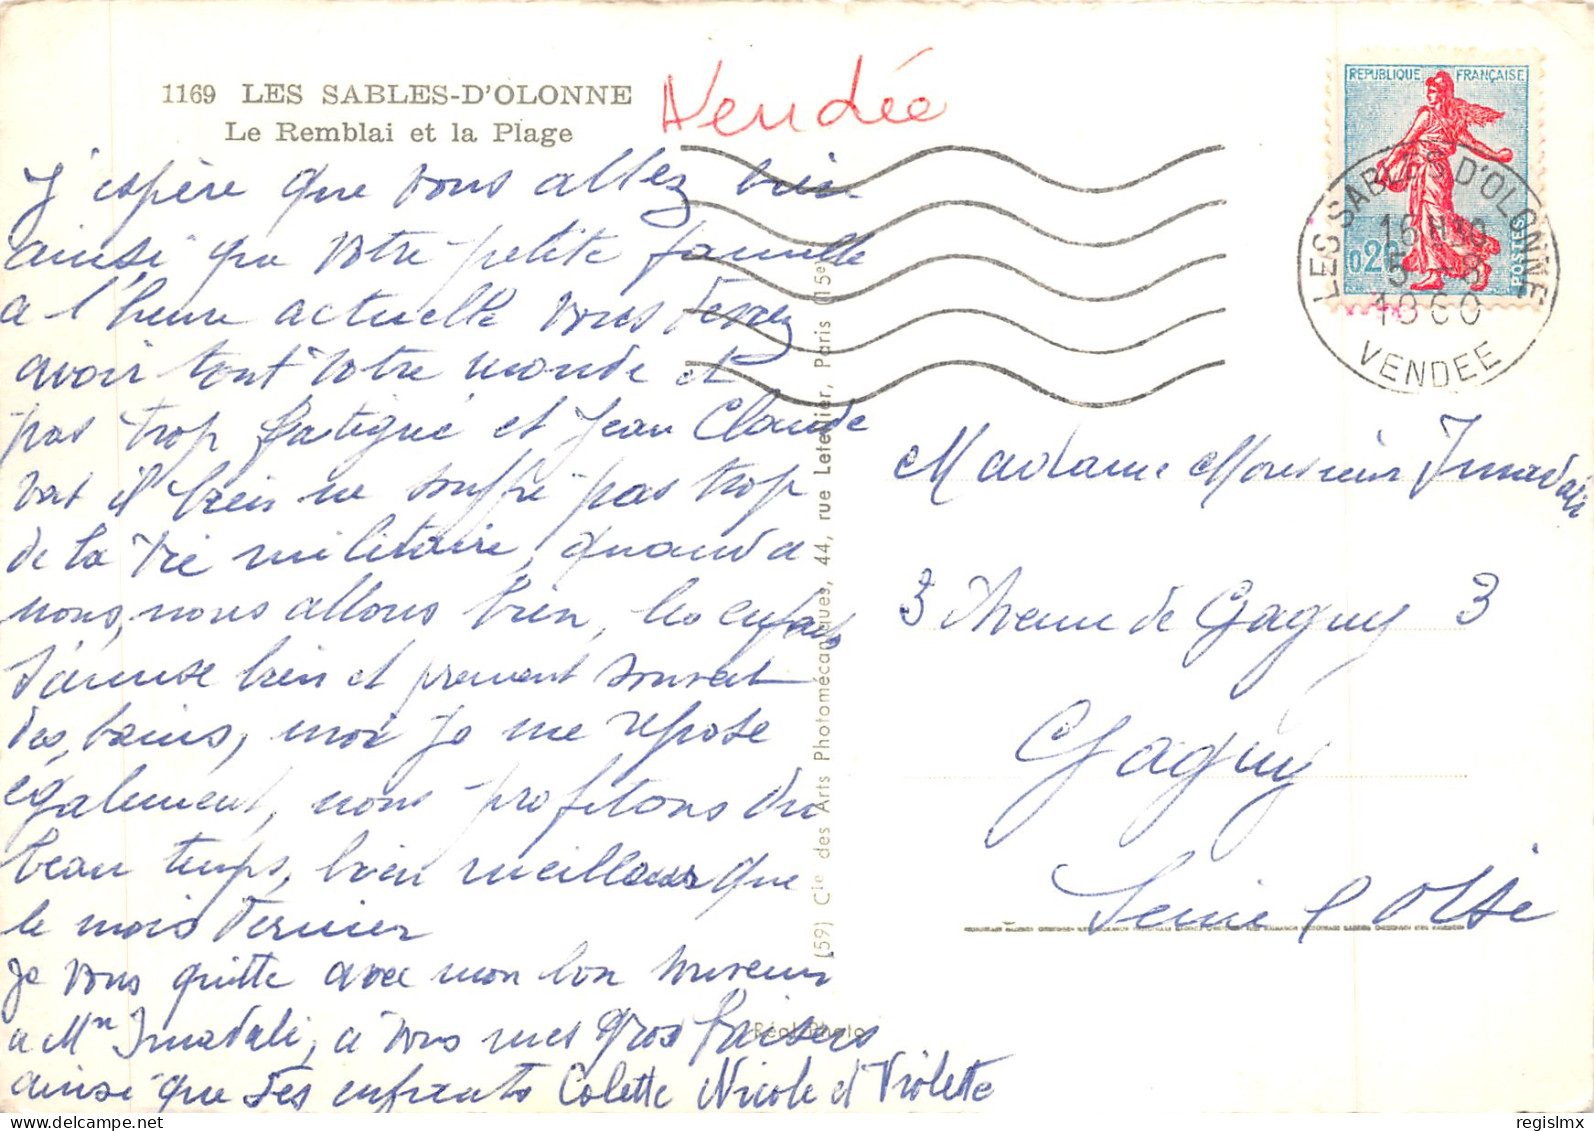 1169 LES SABLES-D'OLONNE
Le Remblai et la Plage
Vendée
J'espère que vous allez bien
ainsi que votre petite famille
a l'heure actuelle vous devez
avoir tout votre monde et
pas trop fatigué et Jean Claude
vat il bien ne souffre pas trop
de la vie militaire, quand a
nous, nous allons bien, les enfants
s'amuse bien et prennent souvent
des bains, moi je me repose
également, nous profitons du
beau temps, bien meilleur que
le mois dernier
Je vous quitte avec mon bon souvenir
a Mr Imadali, a vous mes gros baisers
ainsi que des enfants Colette Nicole et Violette
(59) Cie des Arts Photomécaniques, 44, rue Letellier, Paris (15e)
Réal-Photo
REPUBLIQUE FRANÇAISE
0,20
POSTES
LES SABLES D'OLONNE
16 H
5 - 8
1960
VENDEE
Madame Monsieur
3 Avenue de Gagny 3
Gagny
Seine et Oise
regislmx